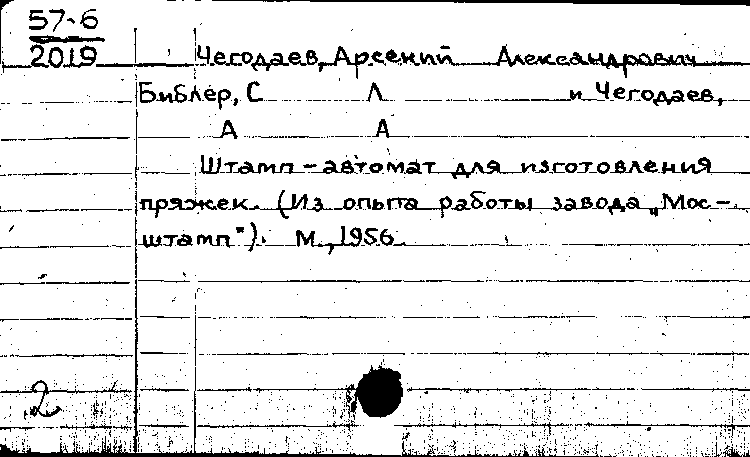 57-6
2019
Чегодаев, Арсений Александрович
Библер, С Л и Чегодаев,
А А
Штамп-автомат для изготовления
пряжек. (Из опыта работы завода „Мос-
штамп"). М., 1956.
2